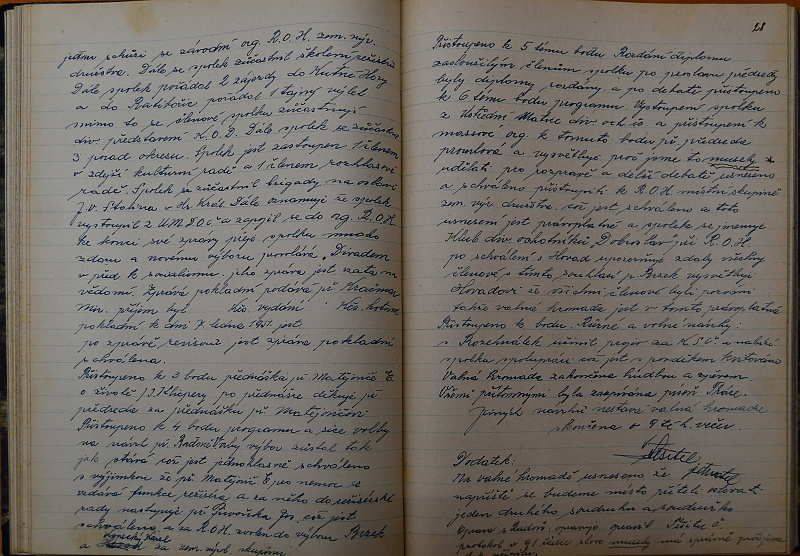 jednu schůzi se závodní org. R.O.H. zem. výr.
družstva. Dále se spolek zúčastnil školení
Dále spolek pořádal 2 zájezdy do Kutné Hory
a do Ratibořic pořádal 1 tajný výlet
mimo to se členové spolku zúčastnují
div. představení K.O.D. Dále spolek se zúčastnil
3 porad okresu. Spolek jest zastoupen 1 členem
v zdejší kulturní radě a 1 členem rozhlasové
radě. Spolek se zúčastnil brigády na
J.V. Stalina v Hr. Král. Dále oznamuje že spolek
vystoupil z ÚMDOČ a zapojil se do org. R.O.H.
Ke konci své zprávy přeje spolku mnoho
zdaru a novému výboru povolává „Divadlem
vpřed k socialismu. jeho zpráva jest vzata na
vědomí. Zprávu pokladní podává př.
Min. příjem byl Kčs. vydání Kčs. hotovost
pokladní k dni 7. ledna 1951. jest
po zprávě revisorů jest zpráva pokladní
schválena.
Přistoupeno k 3 bodu přednáška př. Matějovič E.
o životě J. Klicpery po přednášce děkuje př.
předseda za přednášku př. Matějovičovi
Přistoupeno k 4 bodu programu a sice volby.
na návrh př. výbor zůstal tak
jak stává což jest jednohlasně schváleno
s výjimkou že př. Matějovič E. pro nemoc se
vzdává funkce režiséra a za něho do režisérské
rady nastupuje př. což jest
schváleno, a za R.O.H. zvolen do výboru Bezek
a za zem. výrob. skupinu
28
Přistoupeno k 5 tému bodu Rozdání diplomu
zasloužilým členům spolku po proslovu předsedy
byly diplomy rozdány a po debatě přistoupeno
k 6 tému bodu programu. Vystoupení spolku
z Ústřední Matice div. ochčů. a přistoupení k
masové org. k tomuto bodu př. předseda
promlouvá a vysvětluje proč jsme to musely *
udělati, pro rozpravě a delší debatě usneseno
a schváleno přistoupiti k R.O.H. místní skupině
zem. výr. družstva. což jest schváleno a toto
usnesení jest právoplatné a spolek se jmenuje
Klub div. ochotníků „Dobroslav" při R.O.H.
po schválení s Horad upozorňuje zdaly všichny
členové s tímto souhlasí p. Bezek vysvětluje
Horadovi že všichni členové byli pozváni
takže valná hromada jest v tomto právoplatná
Přistoupeno k bodu. Různé a volné návrhy:
s Rozehnálek učinil projev za K.S.Č. a nabízí
spolku spolupráci což jest s povděkem kvitováno
Valná hromada zakončena hudbou a zpěvem.
Všemi přítomnými byla zazpívána píseň Práce.
Jiných návrhů nestává valná hromada
skončena v 9 te h. večer.
Dodatek:
Na valné hromadě usneseno že
napříště se budeme místo příteli oslovovati
jeden druhého soudruhu a soudružko